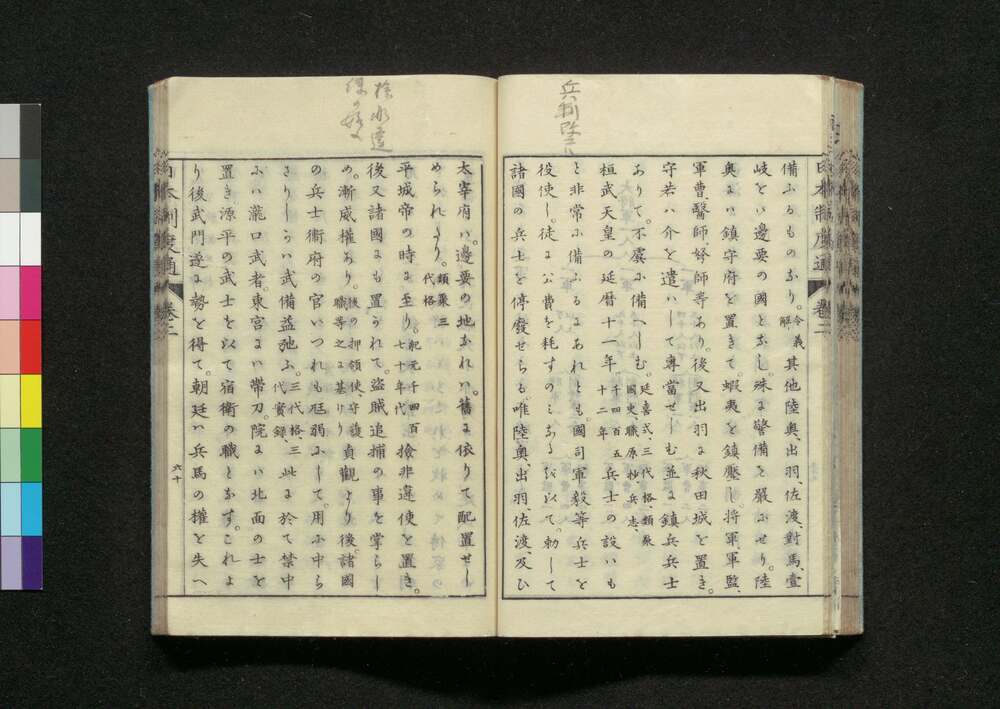 兵制
備ふるものなり。令義解其他陸奥、出羽、佐渡、對馬、壹
岐をハ邊要の國となし。殊に警備を嚴にせり。陸
奥にハ鎮守府を置きて、蝦夷を鎮壓し。将軍、軍監、
軍曹、醫師、弩師等あり、後又出羽に秋田城を置き、
守若ハ介を遣ハして專當せしむ並に鎮兵兵士
ありて。不虞に備へしむ。延喜式、三代格、類聚國史、職原抄、兵志、
桓武天皇の延暦十一年千四百五十二年兵士の設いも
と非常に備ふるにあれとも。國司軍毅等兵士を
役使し。徒に公費を耗すのミなるを以て。勅して
諸國の兵士を停廢せらる。唯陸奥、出羽、佐渡、及ひ
檢非違
使の
太宰府ハ。邊要の地なれハ。舊に依りて配置せし
められたり。類聚三代格
平城帝の時に至り。紀元千四百七十年代檢非違使を置き。
後又諸國にも置かれて。盗賊追捕の事を掌らし
め。漸威權あり。後の押領使、守護職等之に基けり貞觀より後。諸國
の兵士衞府の官いつれも尫弱にして。用ふ中ら
さりしかハ武備益弛ふ。三代格、三代實録、此に於て禁中
にハ瀧口武者。東宮にハ帶刀。院にハ北面の士を
置き源平の武士を以て宿衞の職となす。これよ
り後武門遂に勢を得て。朝廷ハ兵馬の權を失へ
日本制度通
卷二
六十
日本制度通
卷二